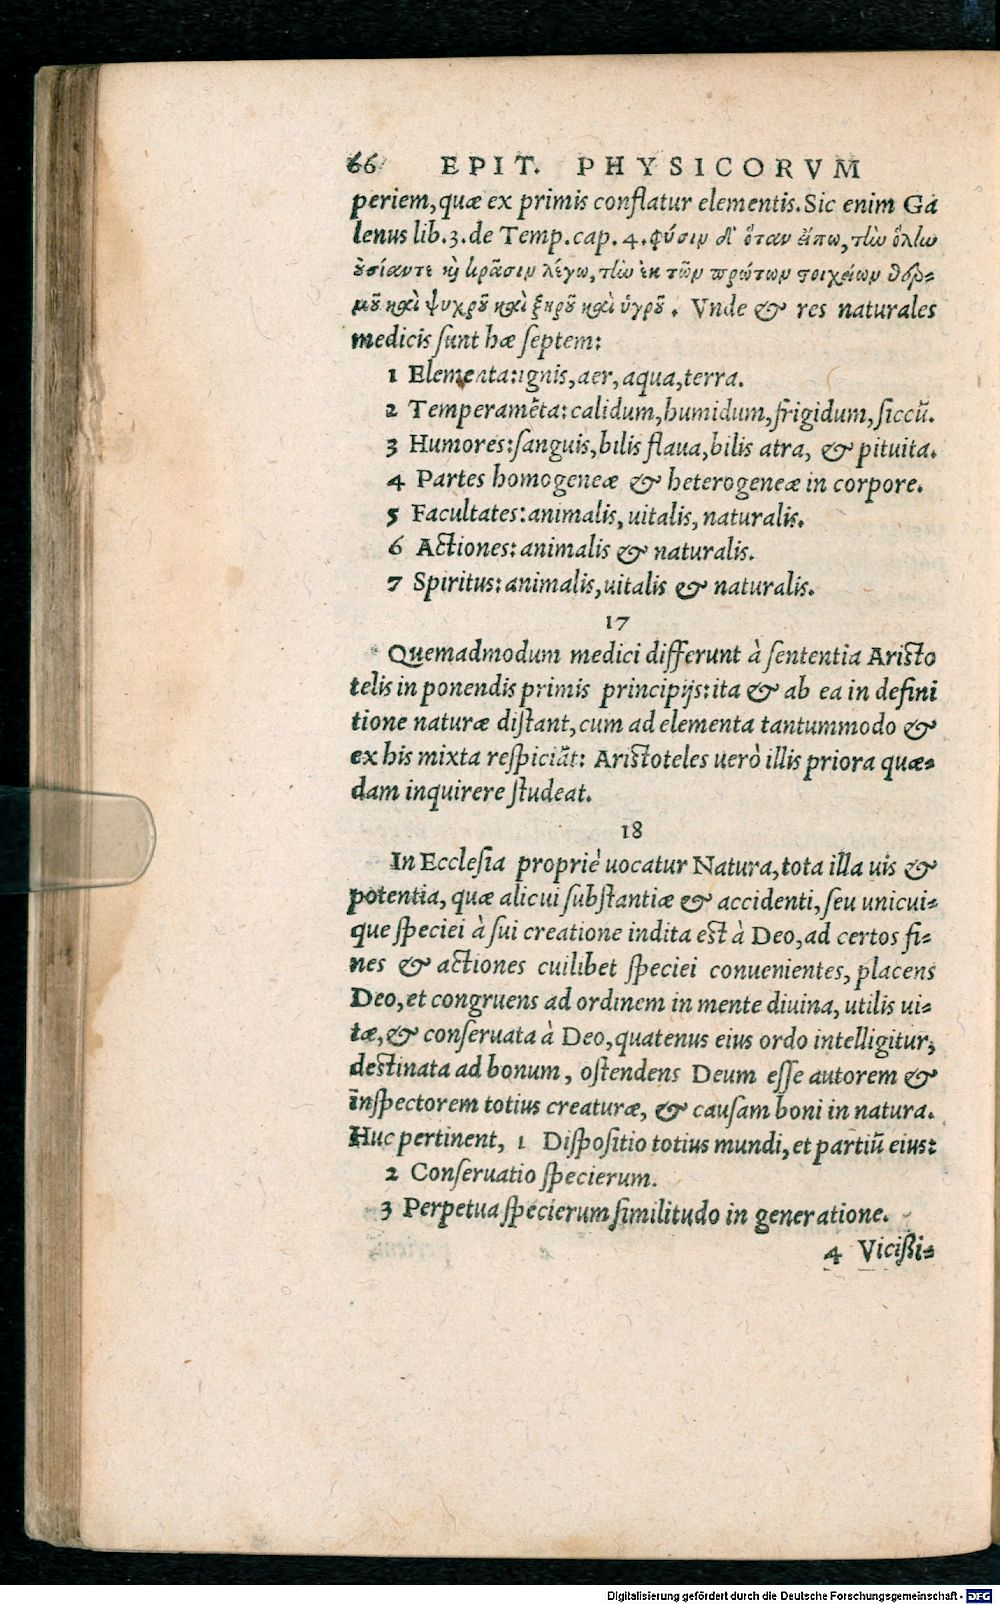 66 EPIT. PHYSICORVM
periem, quæ ex primis conflatur elementis. Sic enim Ga
lenus lib. 3. de Temp. cap. 4. φύσιν δ' ὅταν εἴπω, τὴν ὅλην
οὐσίαν τε καὶ κρᾶσιν λέγω, τὴν ἐκ τῶν πρώτων στοιχείων θερ-
μοῦ καὶ ψυχροῦ καὶ ξηροῦ καὶ ὑγροῦ. Vnde & res naturales
medicis sunt hæ septem:
1 Elementa: ignis, aer, aqua, terra.
2 Temperamẽta: calidum, humidum, frigidum, siccũ.
3 Humores: sanguis, bilis flaua, bilis atra, & pituita.
4 Partes homogeneæ & heterogeneæ in corpore.
5 Facultates: animalis, uitalis, naturalis.
6 Actiones: animalis & naturalis.
7 Spiritus: animalis, uitalis & naturalis.
17
Quemadmodum medici differunt à sententia Aristo
telis in ponendis primis principijs: ita & ab ea in defini
tione naturæ distant, cum ad elementa tantummodo &
ex his mixta respiciãt: Aristoteles uerò illis priora quæ-
dam inquirere studeat.
18
In Ecclesia propriè uocatur Natura, tota illa uis &
potentia, quæ alicui substantiæ & accidenti, seu unicui-
que speciei à sui creatione indita est à Deo, ad certos fi-
nes & actiones cuilibet speciei conuenientes, placens
Deo, et congruens ad ordinem in mente diuina, utilis ui-
tæ, & conseruata à Deo, quatenus eius ordo intelligitur,
destinata ad bonum, ostendens Deum esse autorem &
inspectorem totius creaturæ, & causam boni in natura.
Huc pertinent, 1 Dispositio totius mundi, et partiũ eius:
2 Conseruatio specierum.
3 Perpetua specierum similitudo in generatione.
4 Vicißi-
Digitalisierung gefördert durch die Deutsche Forschungsgemeinschaft - DFG